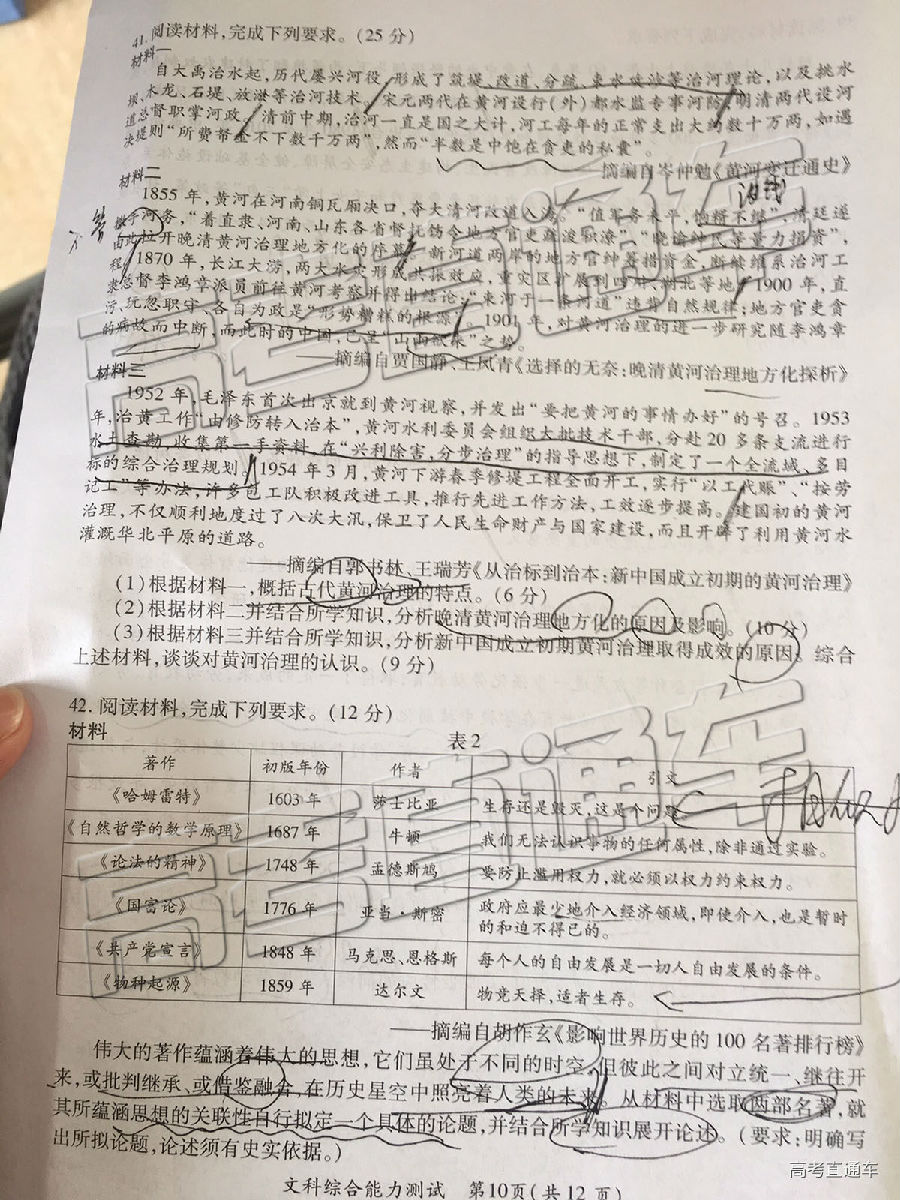 41. 阅读材料,完成下列要求。(25分)
材料一
自大禹治水起,历代屡兴河役,形成了筑堤、改道、分疏、束水攻沙等治河理论,以及挑水
坝、木龙、石堤、放淤等治河技术。宋元两代在黄河设行(外)都水监专事河防,明清两代设河
道总督职掌河政。清前中期,治河一直是国之大计,河工每年的正常支出大约数十万两,如遇
决堤则“所费帑金不下数千万两”,然而“半数是中饱在贪吏的私囊”。
——摘编自岑仲勉《黄河变迁通史》
材料二
1855年,黄河在河南铜瓦厢决口,夺大清河改道入海。“值军务未平,饷糈不继”,清廷遂
河务,“着直隶、河南、山东各省督抚饬令地方官吏疏浚积潦”,“晓谕绅民等量力捐资”,
由此拉开晚清黄河治理地方化的序幕。新河道两岸的地方官绅筹措资金,断续维系治河工
程。1870年,长江大涝,两大水灾形成共振效应,重灾区扩展到四川、湖北等地。1900年,直
隶总督李鸿章派员前往黄河考察并得出结论:“束河于一条河道”违背自然规律;地方官吏贪
污、玩忽职守、各自为政是“形势糟糕的根源”。1901年,对黄河治理的进一步研究随李鸿章
的病故而中断,而此时的中国,已呈“山雨欲来”之势。
——摘编自贾国静、王凤青《选择的无奈:晚清黄河治理地方化探析》
材料三
1952年,毛泽东首次出京就到黄河视察,并发出“要把黄河的事情办好”的号召。1953
年,治黄工作“由修防转入治本”,黄河水利委员会组织大批技术干部,分赴20多条支流进行
水土查勘,收集第一手资料。在“兴利除害,分步治理”的指导思想下,制定了一个全流域、多目
标的综合治理规划。1954年3月,黄河下游春季修堤工程全面开工,实行“以工代赈”、“按劳
记工”等办法,许多包工队积极改进工具,推行先进工作方法,工效逐步提高。建国初的黄河
治理,不仅顺利地度过了八次大汛,保卫了人民生命财产与国家建设,而且开辟了利用黄河水
灌溉华北平原的道路。
——摘编自郭书林、王瑞芳《从治标到治本:新中国成立初期的黄河治理》
(1)根据材料一,概括古代黄河治理的特点。(6分)
(2)根据材料二并结合所学知识,分析晚清黄河治理地方化的原因及影响。(10分)
(3)根据材料三并结合所学知识,分析新中国成立初期黄河治理取得成效的原因。综合
上述材料,谈谈对黄河治理的认识。(9分)
42. 阅读材料,完成下列要求。(12分)
材料
表2
著作 初版年份 作者 引文
《哈姆雷特》 1603年 莎士比亚 生存还是毁灭,这是个问题
《自然哲学的数学原理》 1687年 牛顿 我们无法认识事物的任何属性,除非通过实验。
《论法的精神》 1748年 孟德斯鸠 要防止滥用权力,就必须以权力约束权力。
《国富论》 1776年 亚当·斯密 政府应最少地介入经济领域,即使介入,也是暂时
的和迫不得已的。
《共产党宣言》 1848年 马克思、恩格斯 每个人的自由发展是一切人自由发展的条件。
《物种起源》 1859年 达尔文 物竞天择,适者生存。
——摘编自胡作玄《影响世界历史的100名著排行榜》
伟大的著作蕴涵着伟大的思想,它们虽处于不同的时空,但彼此之间对立统一、继往开
来,或批判继承、或借鉴融合,在历史星空中照亮着人类的未来。从材料中选取两部名著,就
其所蕴涵思想的关联性自行拟定一个具体的论题,并结合所学知识展开论述。(要求:明确写
出所拟论题,论述须有史实依据。)
文科综合能力测试 第10页(共12页)
高考直通车
高考直通车
高考直通车